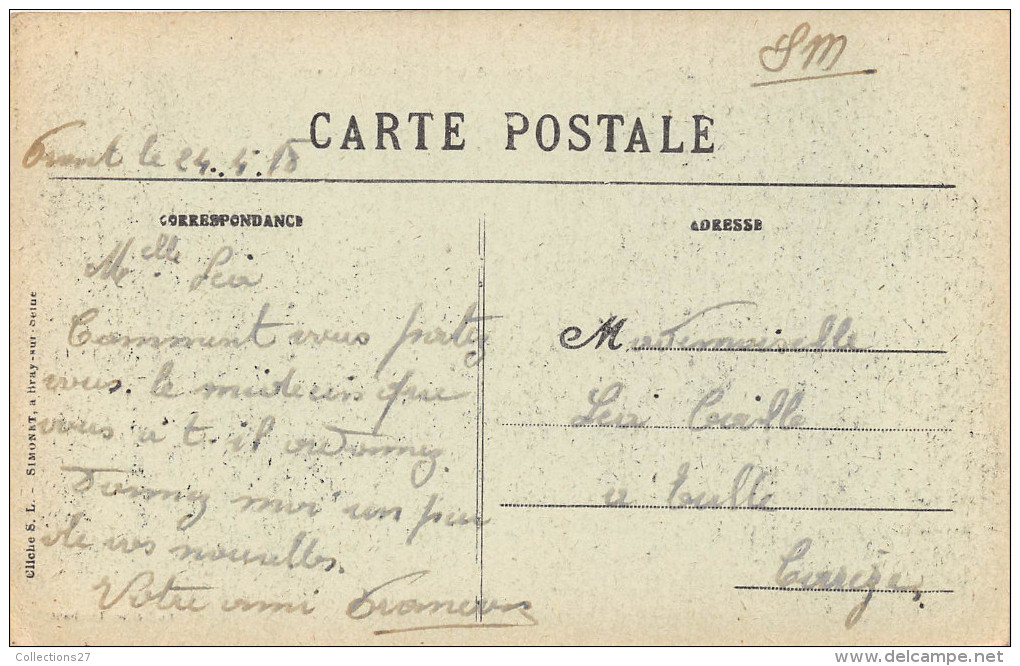 SM
CARTE POSTALE
le 24.4.15
CORRESPONDANCE
ADRESSE
Melle Léa
Comment vous portez
vous. le médecin que
vous a t-il ordonnez.
Donnez moi un peu
de vos nouvelles.
Votre ami François
Mademoiselle
Léa
a Tulle
Corrèze.
Cliché S. L. - SIMONET, à Bray-sur-Seine
Collections27
www.delcampe.net